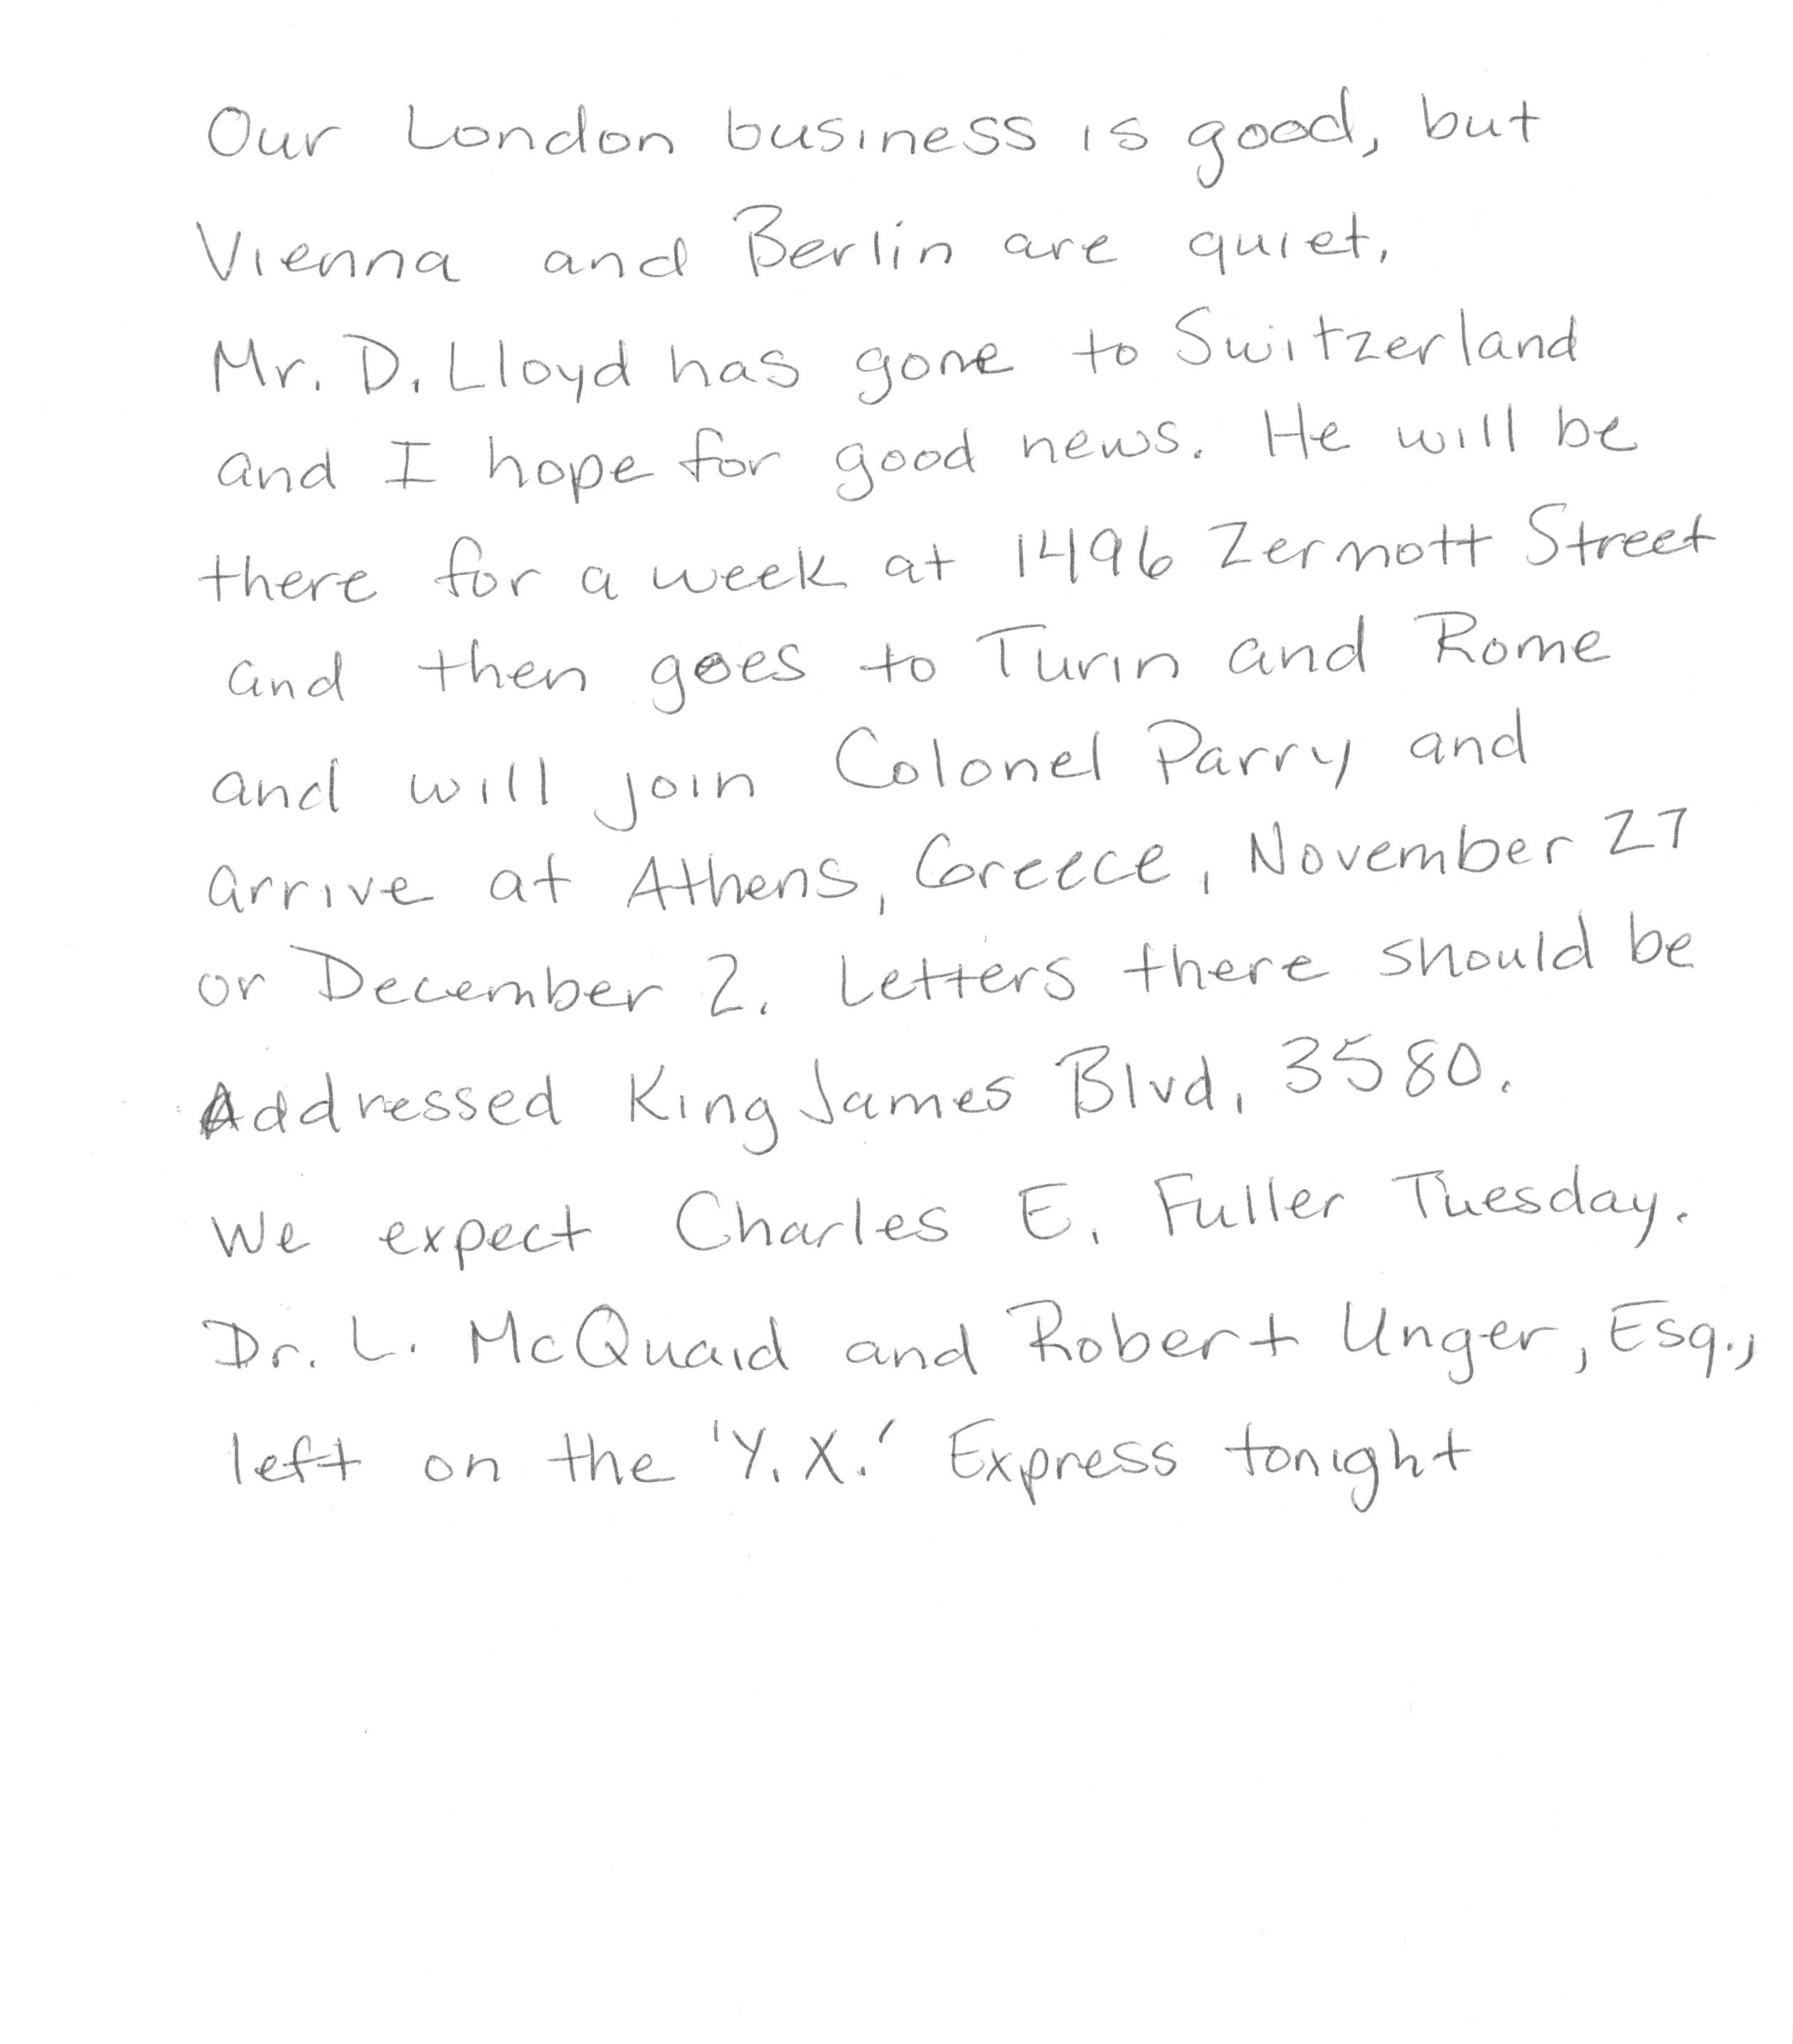 Our London business is good, but
Vienna and Berlin are quiet.
Mr. D. Lloyd has gone to Switzerland
and I hope for good news. He will be
there for a week at 1496 Zermott Street
and then goes to Turin and Rome
and will join Colonel Parry and
arrive at Athens, Greece, November 27
or December 2. Letters there should be
Addressed King James Blvd, 3580.
We expect Charles E. Fuller Tuesday.
Dr. L. McQuaid and Robert Unger, Esq.,
left on the 'Y.X.' Express tonight